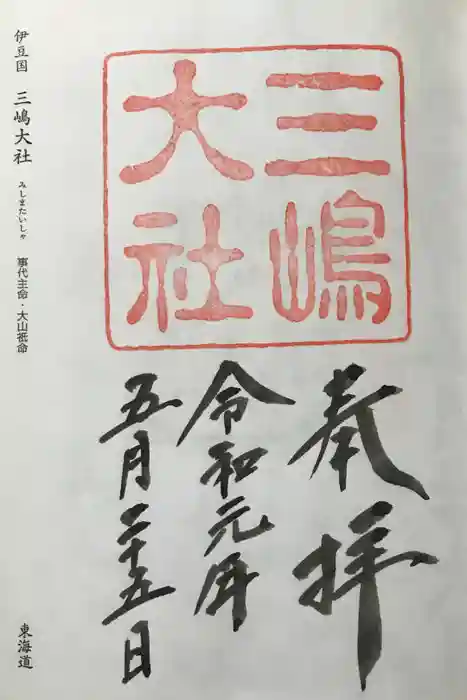 三嶋
大社
奉拝
令和元年
五月二十五日
伊豆国 三嶋大社 みしまたいしゃ 事代主命・大山祇命 東海道